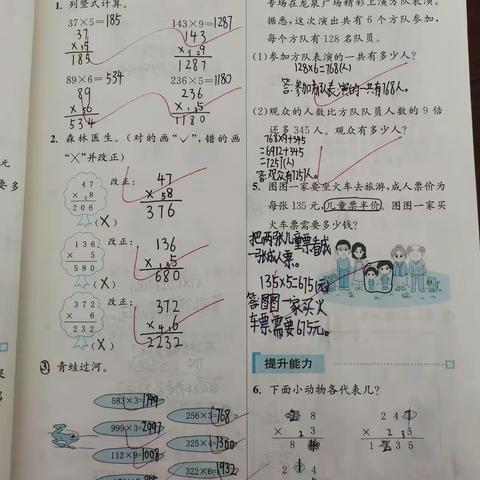 1. 列竖式计算。
37×5=185
143×9=1287
37
× 5
185
143
× 9
1287
89×6=534
236×5=1180
89
× 6
534
236
× 5
1180
2. 森林医生。(对的画“✓”,错的画
“×”并改正)
47
× 8
206
(×)
改正:
47
× 8
376
136
× 5
580
(×)
改正:
136
× 5
680
372
× 6
232
(×)
改正:
372
× 6
2232
3. 青蛙过河。
583×3=1749
256×3=768
999×3=2997
325×4=1300
112×9=1008
322×6=1932
专场在龙泉广场精彩上演方队表演。
据悉,这次演出共有 6 个方队参加,
每个方队有 128 名队员。
(1)参加方队表演的一共有多少人?
128×6=768(人)
答:参加方队表演的一共有768人。
(2)观众的人数比方队队员人数的 9 倍
还多 345 人。观众有多少人?
768×9+345
=6912+345
=7257(人)
答:观众有7257人。
5. 图图一家要坐火车去旅游,成人票价为
每张 135 元,儿童票半价。图图一家买
火车票需要多少钱?
把两张儿童票看成
一张成人票。
135×5=675(元)
答图图一家买火
车票需要675元。
提升能力
6. 下面小动物各代表几?